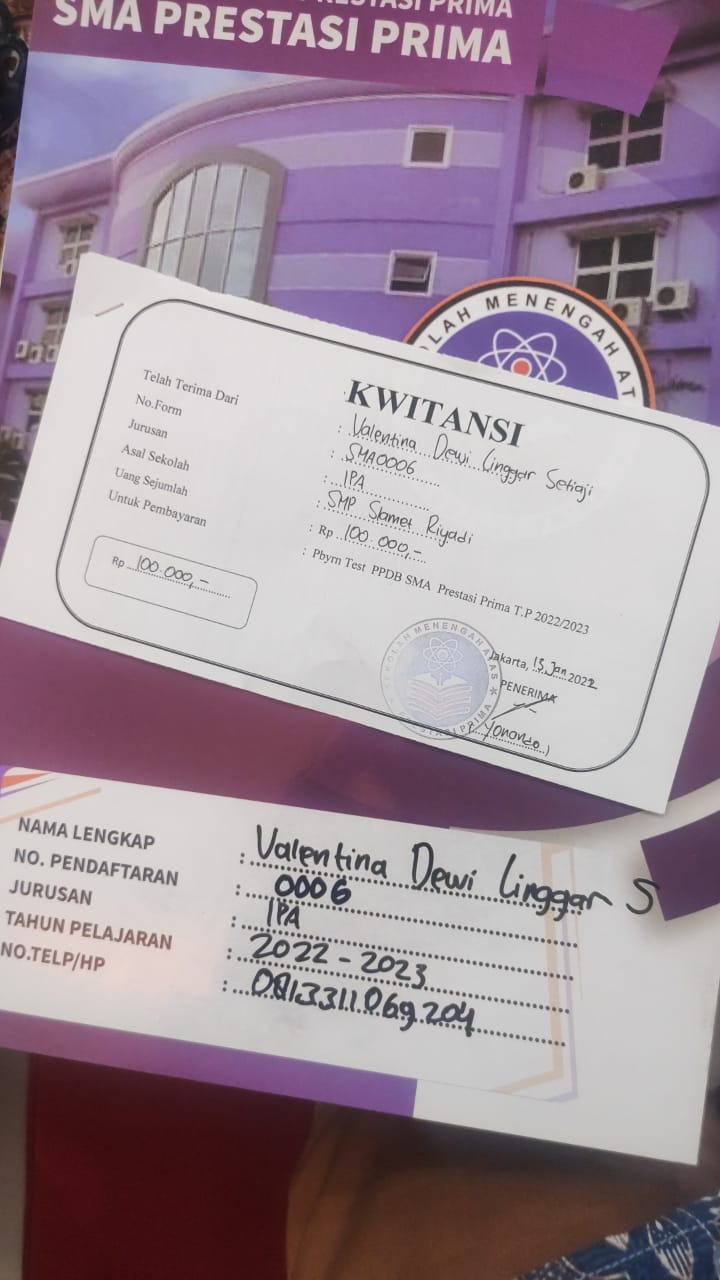 PRESTASI PRIMA
SMA PRESTASI PRIMA
OLAH MENENGAH AT
KWITANSI
Telah Terima Dari : Valentina Dewi Linggar Setiaji
No.Form : SMA0006
Jurusan : IPA
Asal Sekolah : SMP Slamet Riyadi
Uang Sejumlah : Rp 100.000,-
Untuk Pembayaran : Pbyrn Test PPDB SMA Prestasi Prima T.P 2022/2023
Rp 100.000,-
SEKOLAH MENENGAH ATAS
PRESTASI PRIMA
Jakarta, 15 Jan 2022
PENERIMA
(Yonando)
NAMA LENGKAP : Valentina Dewi Linggar S
NO. PENDAFTARAN : 0006
JURUSAN : IPA
TAHUN PELAJARAN : 2022 - 2023
NO.TELP/HP : 081331106g204